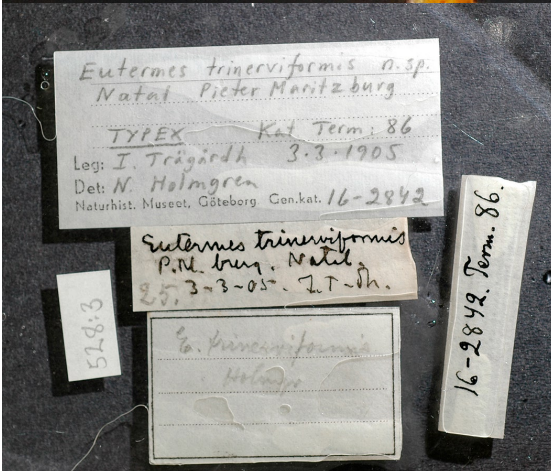 Eutermes trinerviformis n.sp.
Natal Pieter Maritzburg
TYPEX Kat Term: 86
Leg: I. Trägårdh 3.3.1905
Det: N. Holmgren
Naturhist. Museet, Göteborg Gen.kat. 16-2842
Eutermes trinerviformis
P.M. burg. Natal.
25. 3-3-05. I.T-dh.
E. trinerviformis
Holmgr
528:3
16-2842. Term. 86.